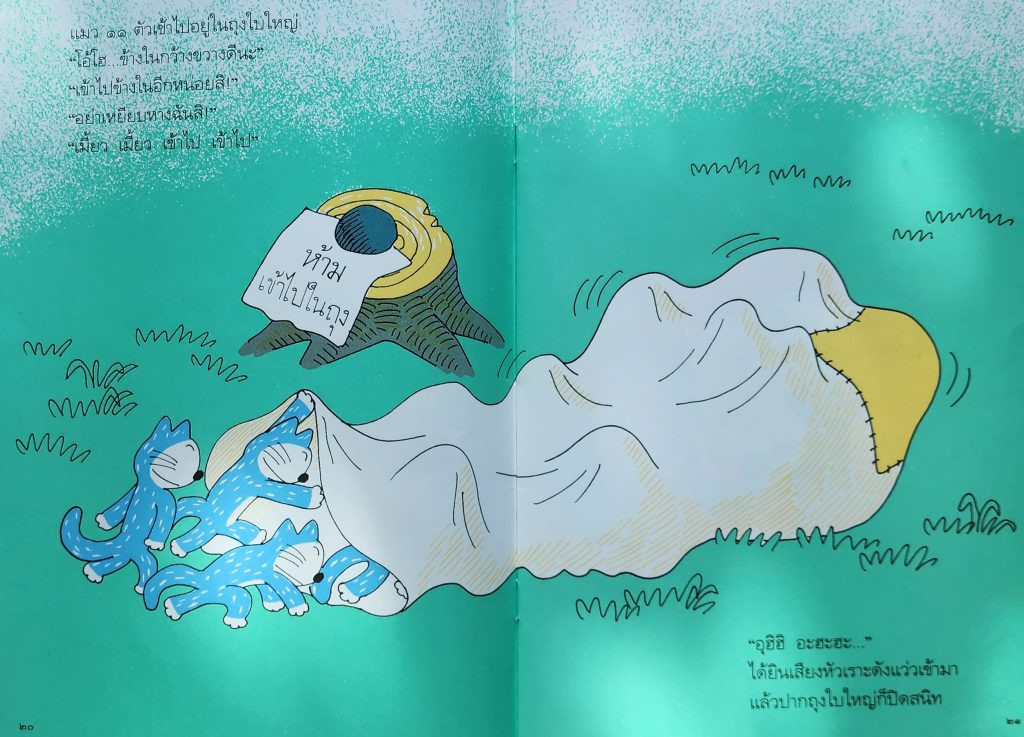 แมว ๑๑ ตัวเข้าไปอยู่ในถุงใบใหญ่
“โอ้โฮ...ข้างในกว้างขวางดีนะ”
“เข้าไปข้างในอีกหน่อยสิ!”
“อย่าเหยียบหางฉันสิ!”
“เมี้ยว เมี้ยว เข้าไป เข้าไป”
ห้าม
เข้าไปในถุง
“อุฮิฮิ อะฮะฮะ...”
ได้ยินเสียงหัวเราะดังแว่วเข้ามา
แล้วปากถุงใบใหญ่ก็ปิดสนิท
๒๐
๒๑